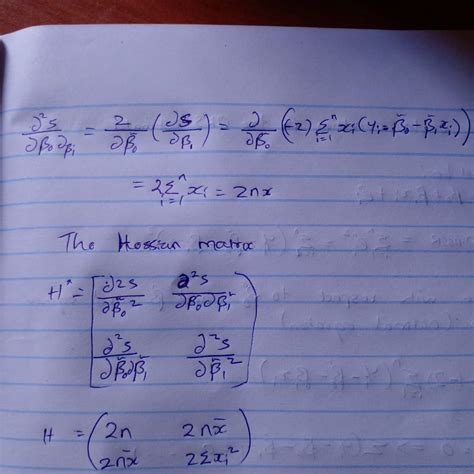 ∂²S/∂β₀∂β₁ = 2/∂β̃₀ (∂S/∂β₁) = ∂/∂β̃₀ ((-2) Σⁿᵢ₌₁ xᵢ(yᵢ = β̃₀ - β̃₁xᵢ))
= 2Σⁿᵢ₌₁ xᵢ = 2nx
The Hessian matrix
H* = [∂2S/∂β̃₀² ∂²S/∂β̃₀∂β̃₁
∂²S/∂β̃₀∂β̃₁ ∂²S/∂β̃₁²]
H = (2n 2nx̄
2nx̄ 2Σxᵢ²)